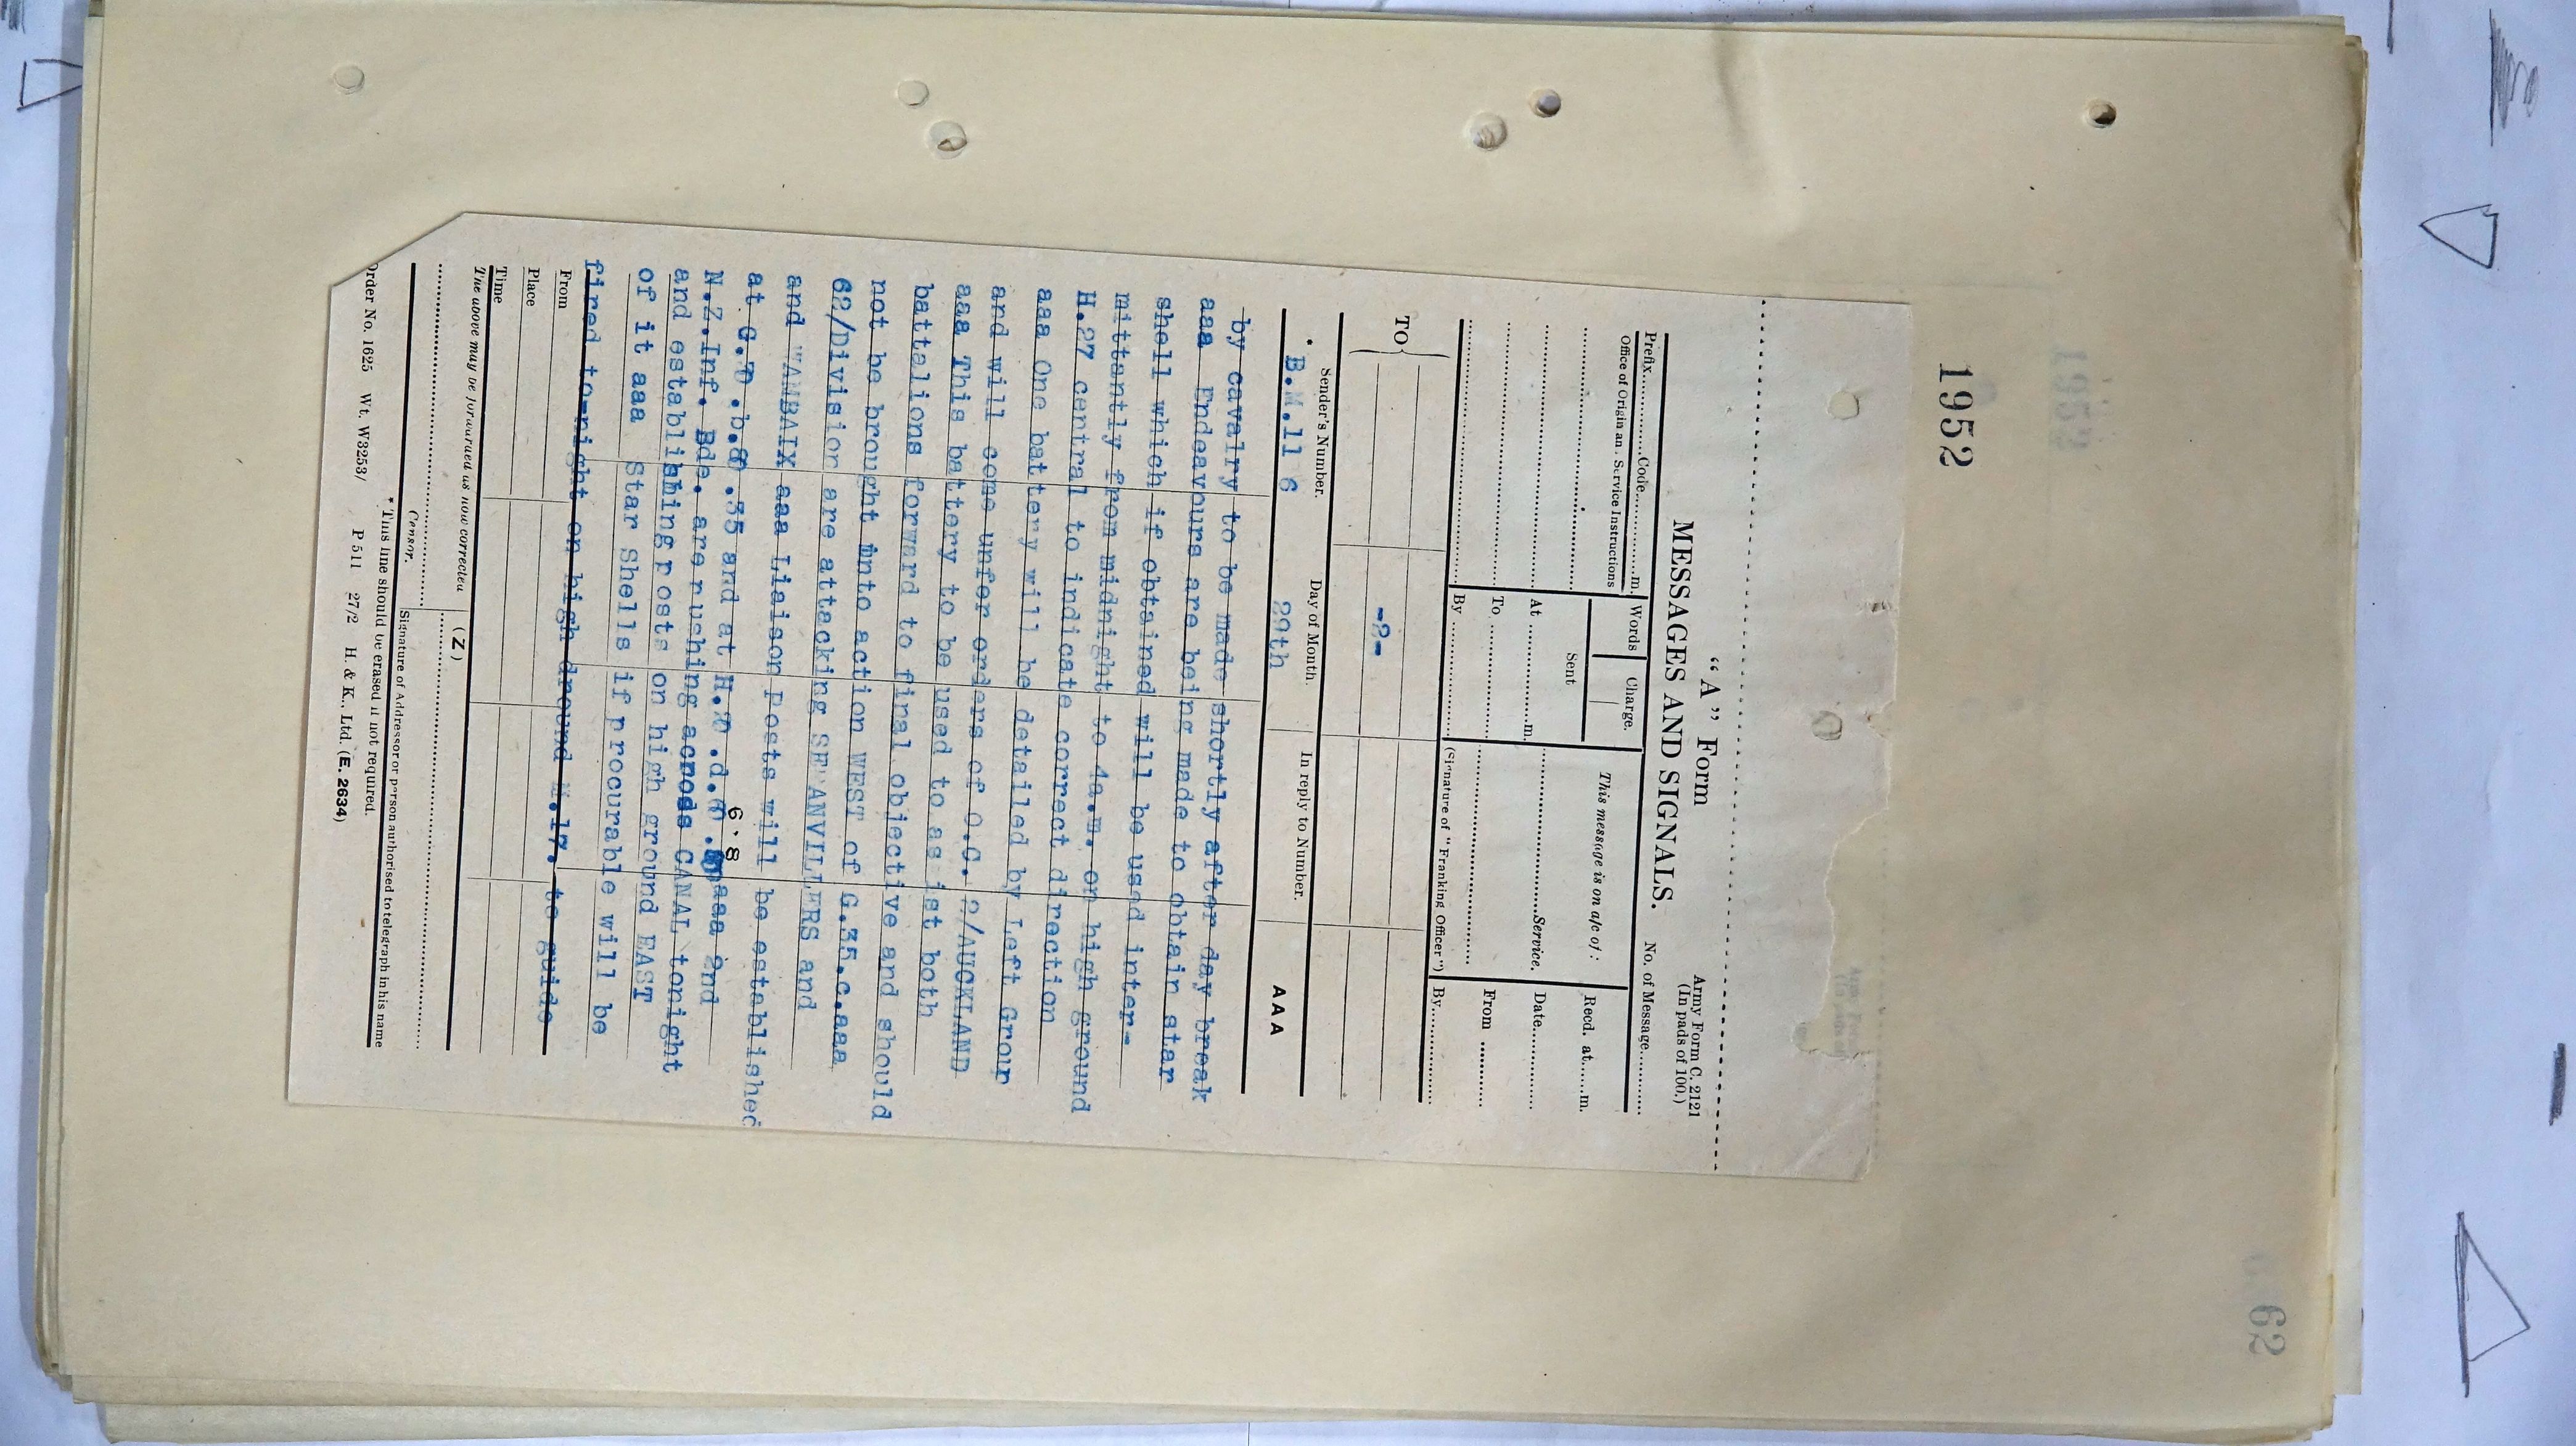 1952
"A" Form
MESSAGES AND SIGNALS.
Army Form C. 2121
(In pads of 100.)
No. of Message............
Prefix............Code............m.
Office of Origin and Service Instructions
Words
Charge.
This message is on a/c of :
Recd. at......m.
Sent
At ............m.
............Service.
Date............
To ............
From ............
By ............
(Signature of "Franking Officer")
By............
TO
-2-
Sender's Number.
Day of Month.
In reply to Number.
AAA
B.M.11 6
29th
by cavalry to be made shortly after day break
aaa Endeavours are being made to obtain star
shell which if obtained will be used inter-
mittantly from midnight to 4a.m. on high ground
H.27 central to indicate correct direction
aaa One battery will be detailed by Left Group
and will come unfer orders of O.C. 2/AUCKLAND
aaa This battery to be used to as ist both
battalions forward to final objective and should
not be brought into action WEST of G.35.c.aaa
62/Division are attacking SERANVILLERS and
and WAMBAIX aaa Liaison Posts will be established
at G. .b. .35 and at H. .d. . aaa 2nd
6.8
N.Z.Inf. Bde. are rushing across CANAL tonight
and establishing posts on high ground EAST
of it aaa Star Shells if procurable will be
fired to-night on high dround M.17. to guide
From
Place
Time
The above may be forwarded as now corrected
(Z)
Censor.
Signature of Addressor or person authorised to telegraph in his name
* This line should be erased if not required.
Order No. 1625 Wt. W3253/ P 511 27/2 H. & K., Ltd. (E. 2634)
62